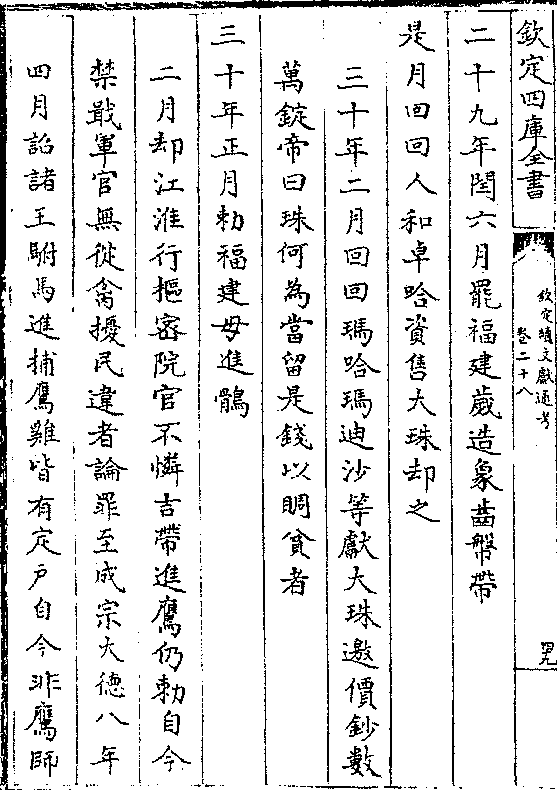 欽定四庫全書
欽定續文獻通考
卷二十八
四九
二十九年閏六月罷福建歲造象齒鞶帶
是月回回人和卓哈資售大珠却之
三十年二月回回瑪哈瑪迪沙等獻大珠邀價鈔數
萬錠帝曰珠何為當留是錢以賙貧者
三十年正月勅福建毋進鶻
二月却江淮行樞密院官不憐吉帶進鷹仍勅自今
禁戢軍官無從禽擾民違者論罪至成宗大德八年
四月詔諸王駙馬進捕鷹雞皆有定戶自今非鷹師